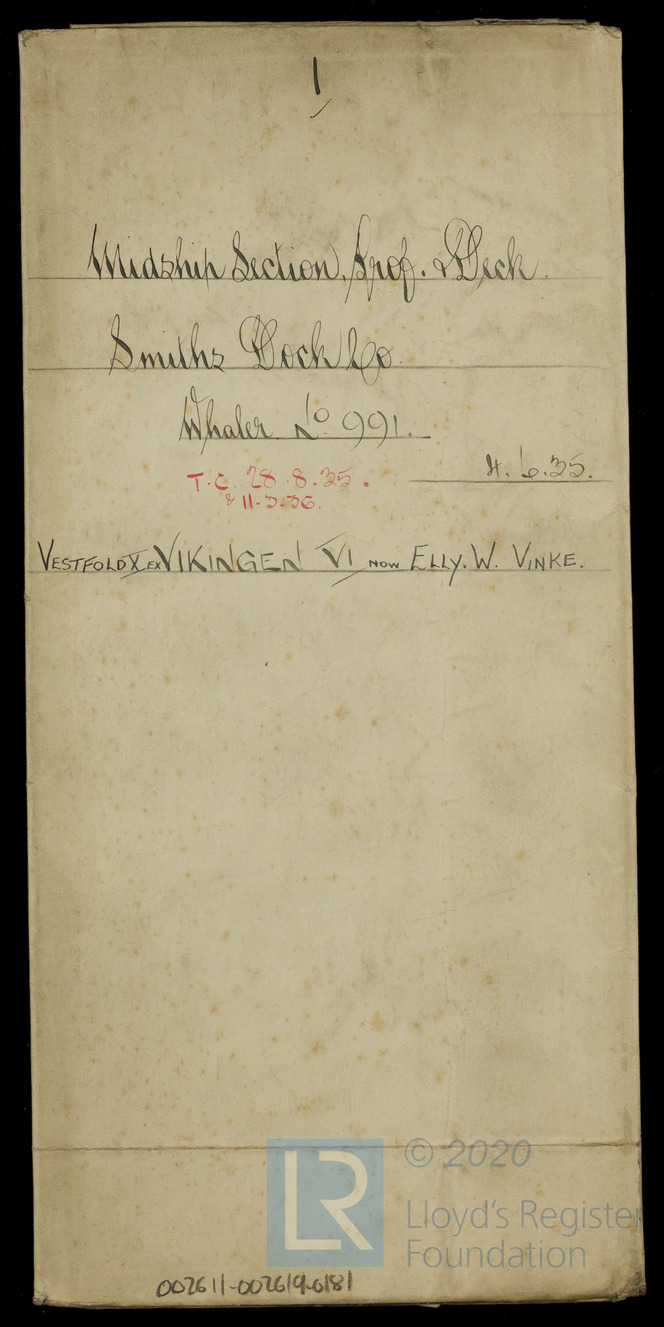 1
Midship Section, Prof. & Deck.
Smiths Dock Co.
Whaler No 991.
4.6.35.
T.C. 28.8.35.
& 11.3.36.
VESTFOLD X EX VIKINGEN VI NOW ELLY. W. VINKE.
LR
© 2020
Lloyd's Register
Foundation
002611-002619-0181